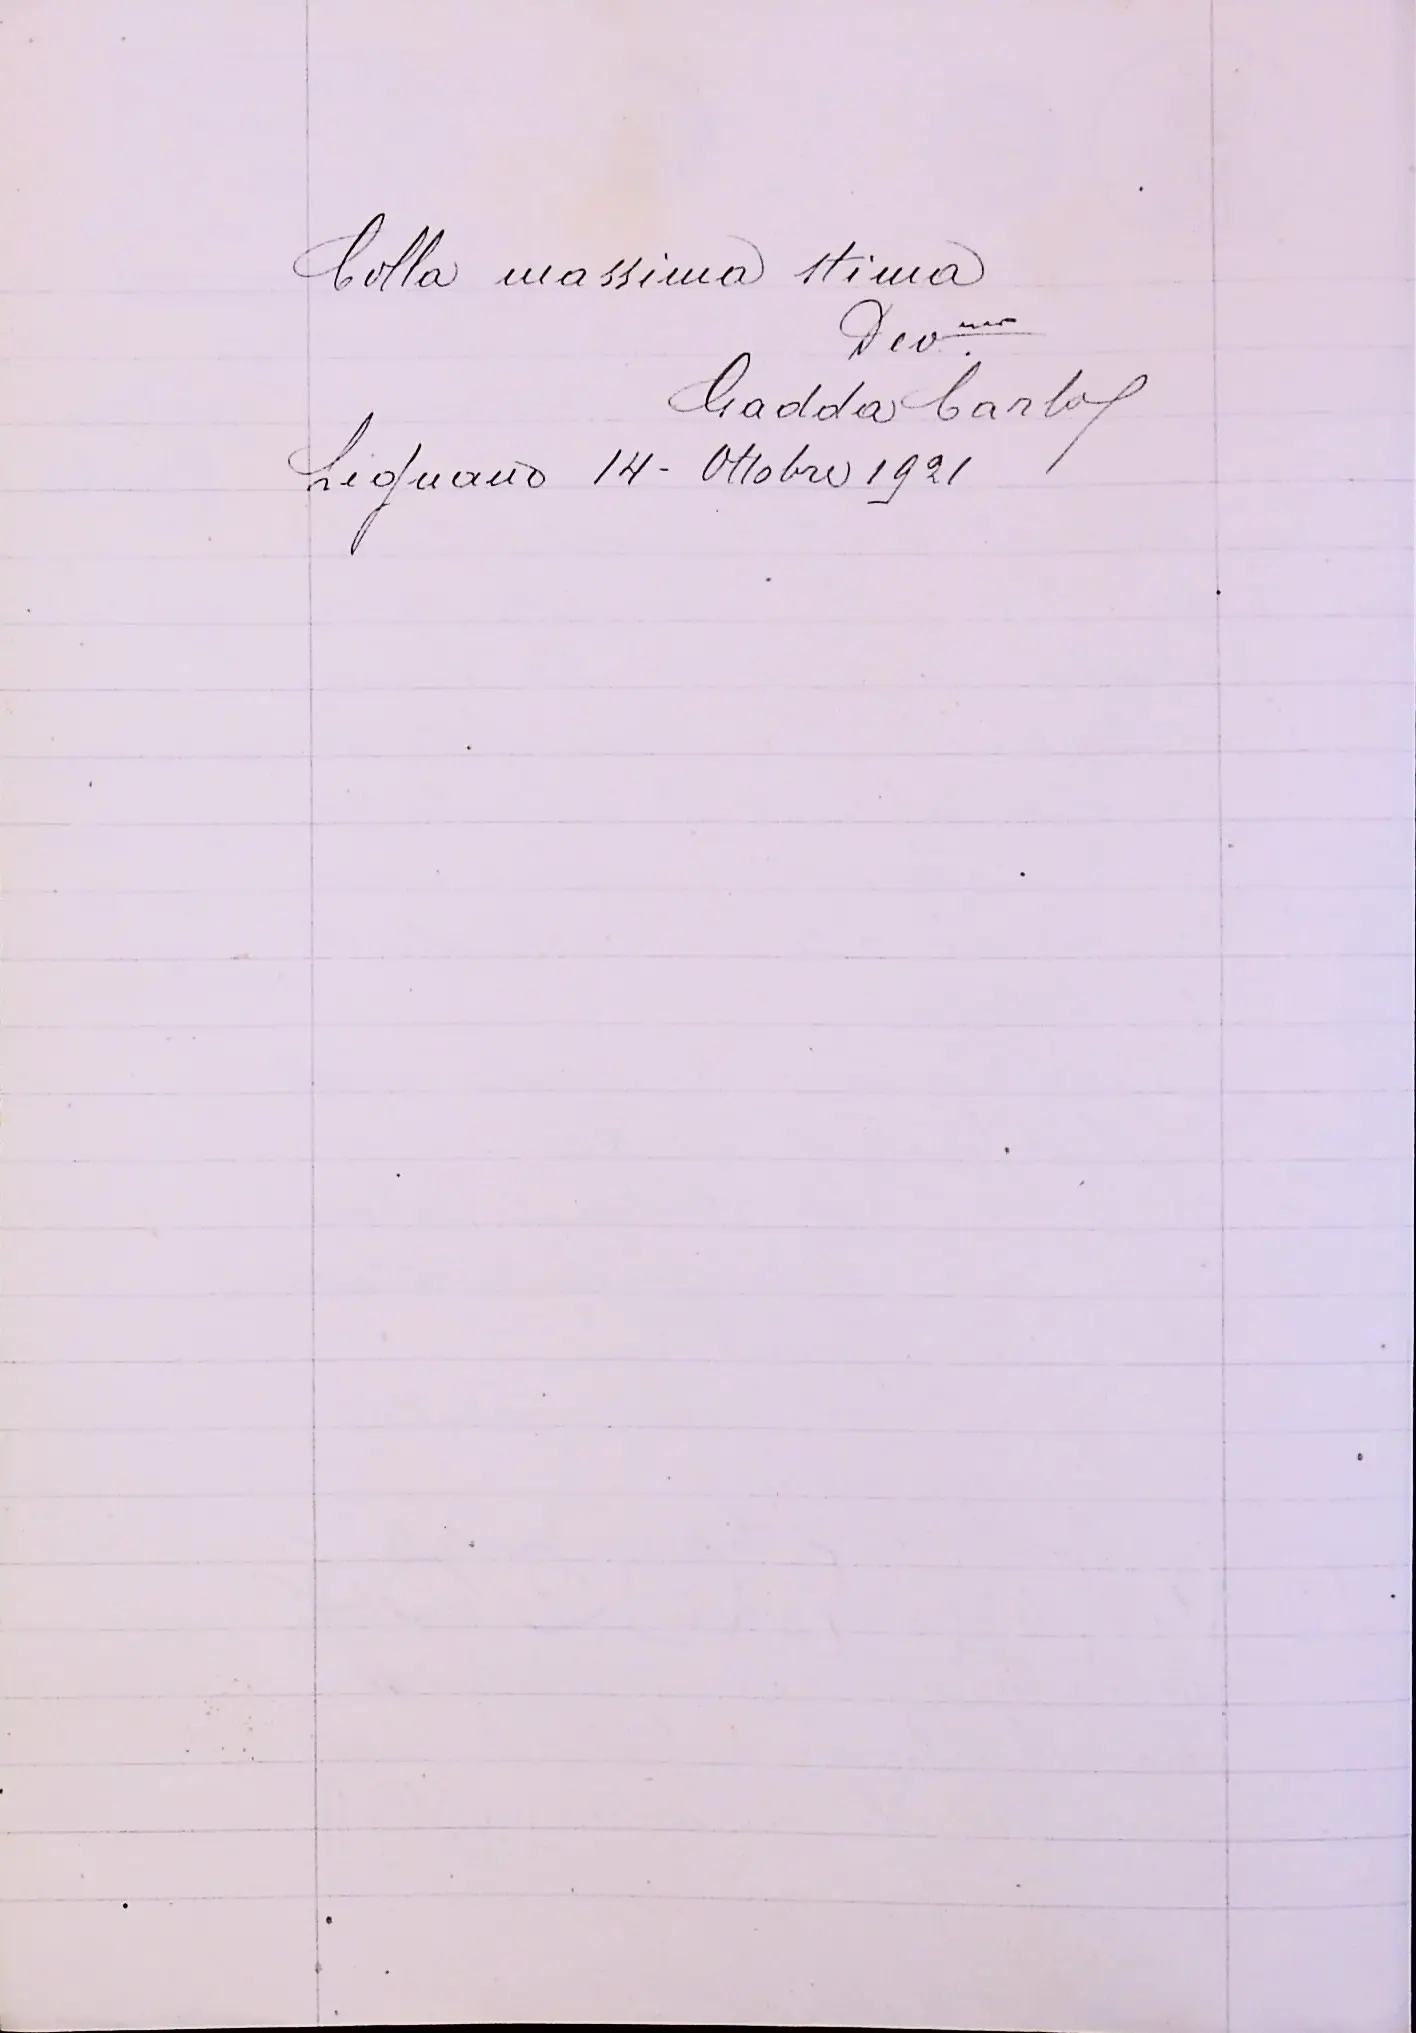 Colla massima stima
Dev.mo
Gadda Carlo
Legnano 14 - Ottobre 1921